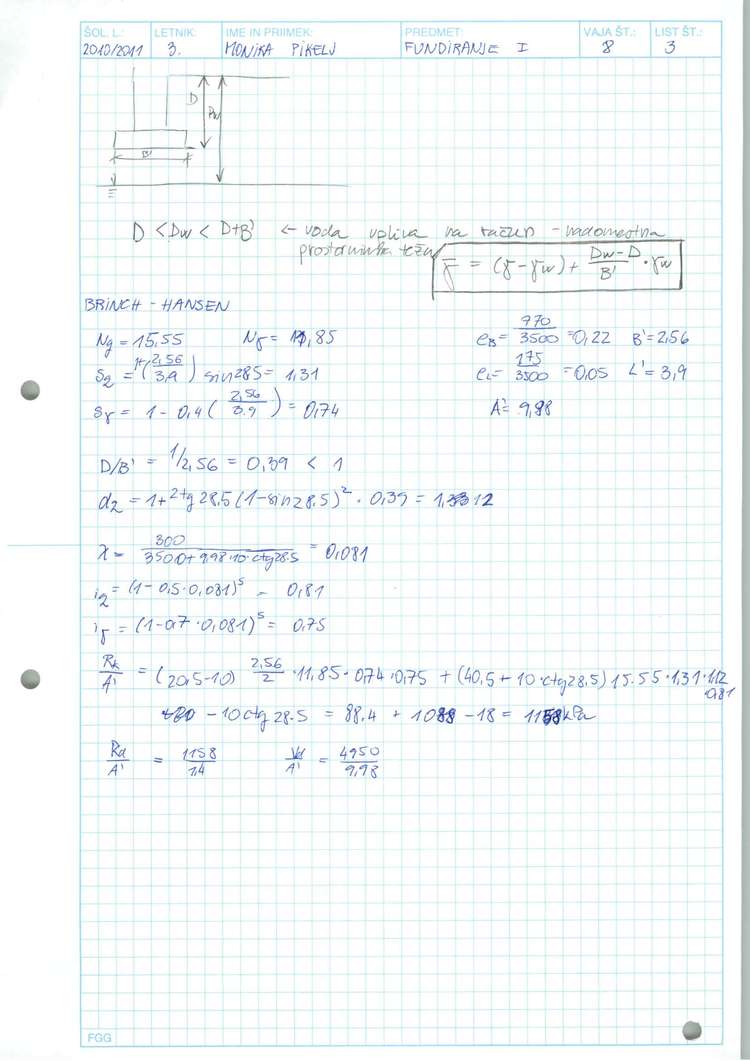 ŠOL. L.: LETNIK: IME IN PRIIMEK: PREDMET: VAJA ŠT.: LIST ŠT.:
2010/2011 3. MONIKA PIKELJ FUNDIRANJE I 8 3
D Dw
B'
D < Dw < D+B' ← voda vpliva na račun - nadomestna
prostorninska teža
γ̄ = (γ-γw) + (Dw-D)/B' · γw
BRINCH - HANSEN
Nq = 15,55 Nγ = 11,85 eB = 970/3500 = 0,22 B' = 2,56
s2 = 1+(2,56/3,9) sin 28.5 = 1,31 eL = 175/3500 = 0,05 L' = 3,9
sγ = 1 - 0,4 (2,56/3.9) = 0,74 A' = 9,98
D/B' = 1/2,56 = 0,39 < 1
d2 = 1+2tg 28.5 (1-sin 28.5)² · 0,39 = 1,12
χ = 300/(3500+9,98·10·ctg28.5) = 0,081
i2 = (1-0,5·0,081)⁵ = 0,81
iγ = (1-0,7·0,081)⁵ = 0,75
Rk/A' = (20,5-10) 2,56/2 · 11,85 · 0,74 · 0,75 + (40,5 + 10·ctg28.5) 15.55 · 1,31 · 1,12
· 0,81
- 10 ctg 28.5 = 88.4 + 1088 - 18 = 1158 kPa
Rd/A' = 1158/1,4 Vd/A' = 4950/9,98
FGG